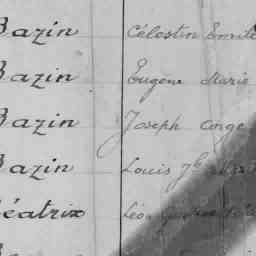 Bazin Célestin Emile
Bazin Eugène Marie
Bazin Joseph Ange
Bazin Louis
Béatrix Léo